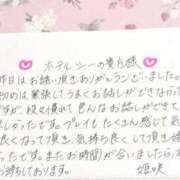 ホテルシーの貴白様
昨日はお誘い頂きありがとうございました。
初めは緊張してうまくお話しができなかったの
ですが、段々慣れて色んなお話しができて
しかったです。プレイもたくさん感じて気
良くして頂いて、気持ち良くして頂き嬉
ったです。またお時間が合いましたら、
待ちしております。
姫咲